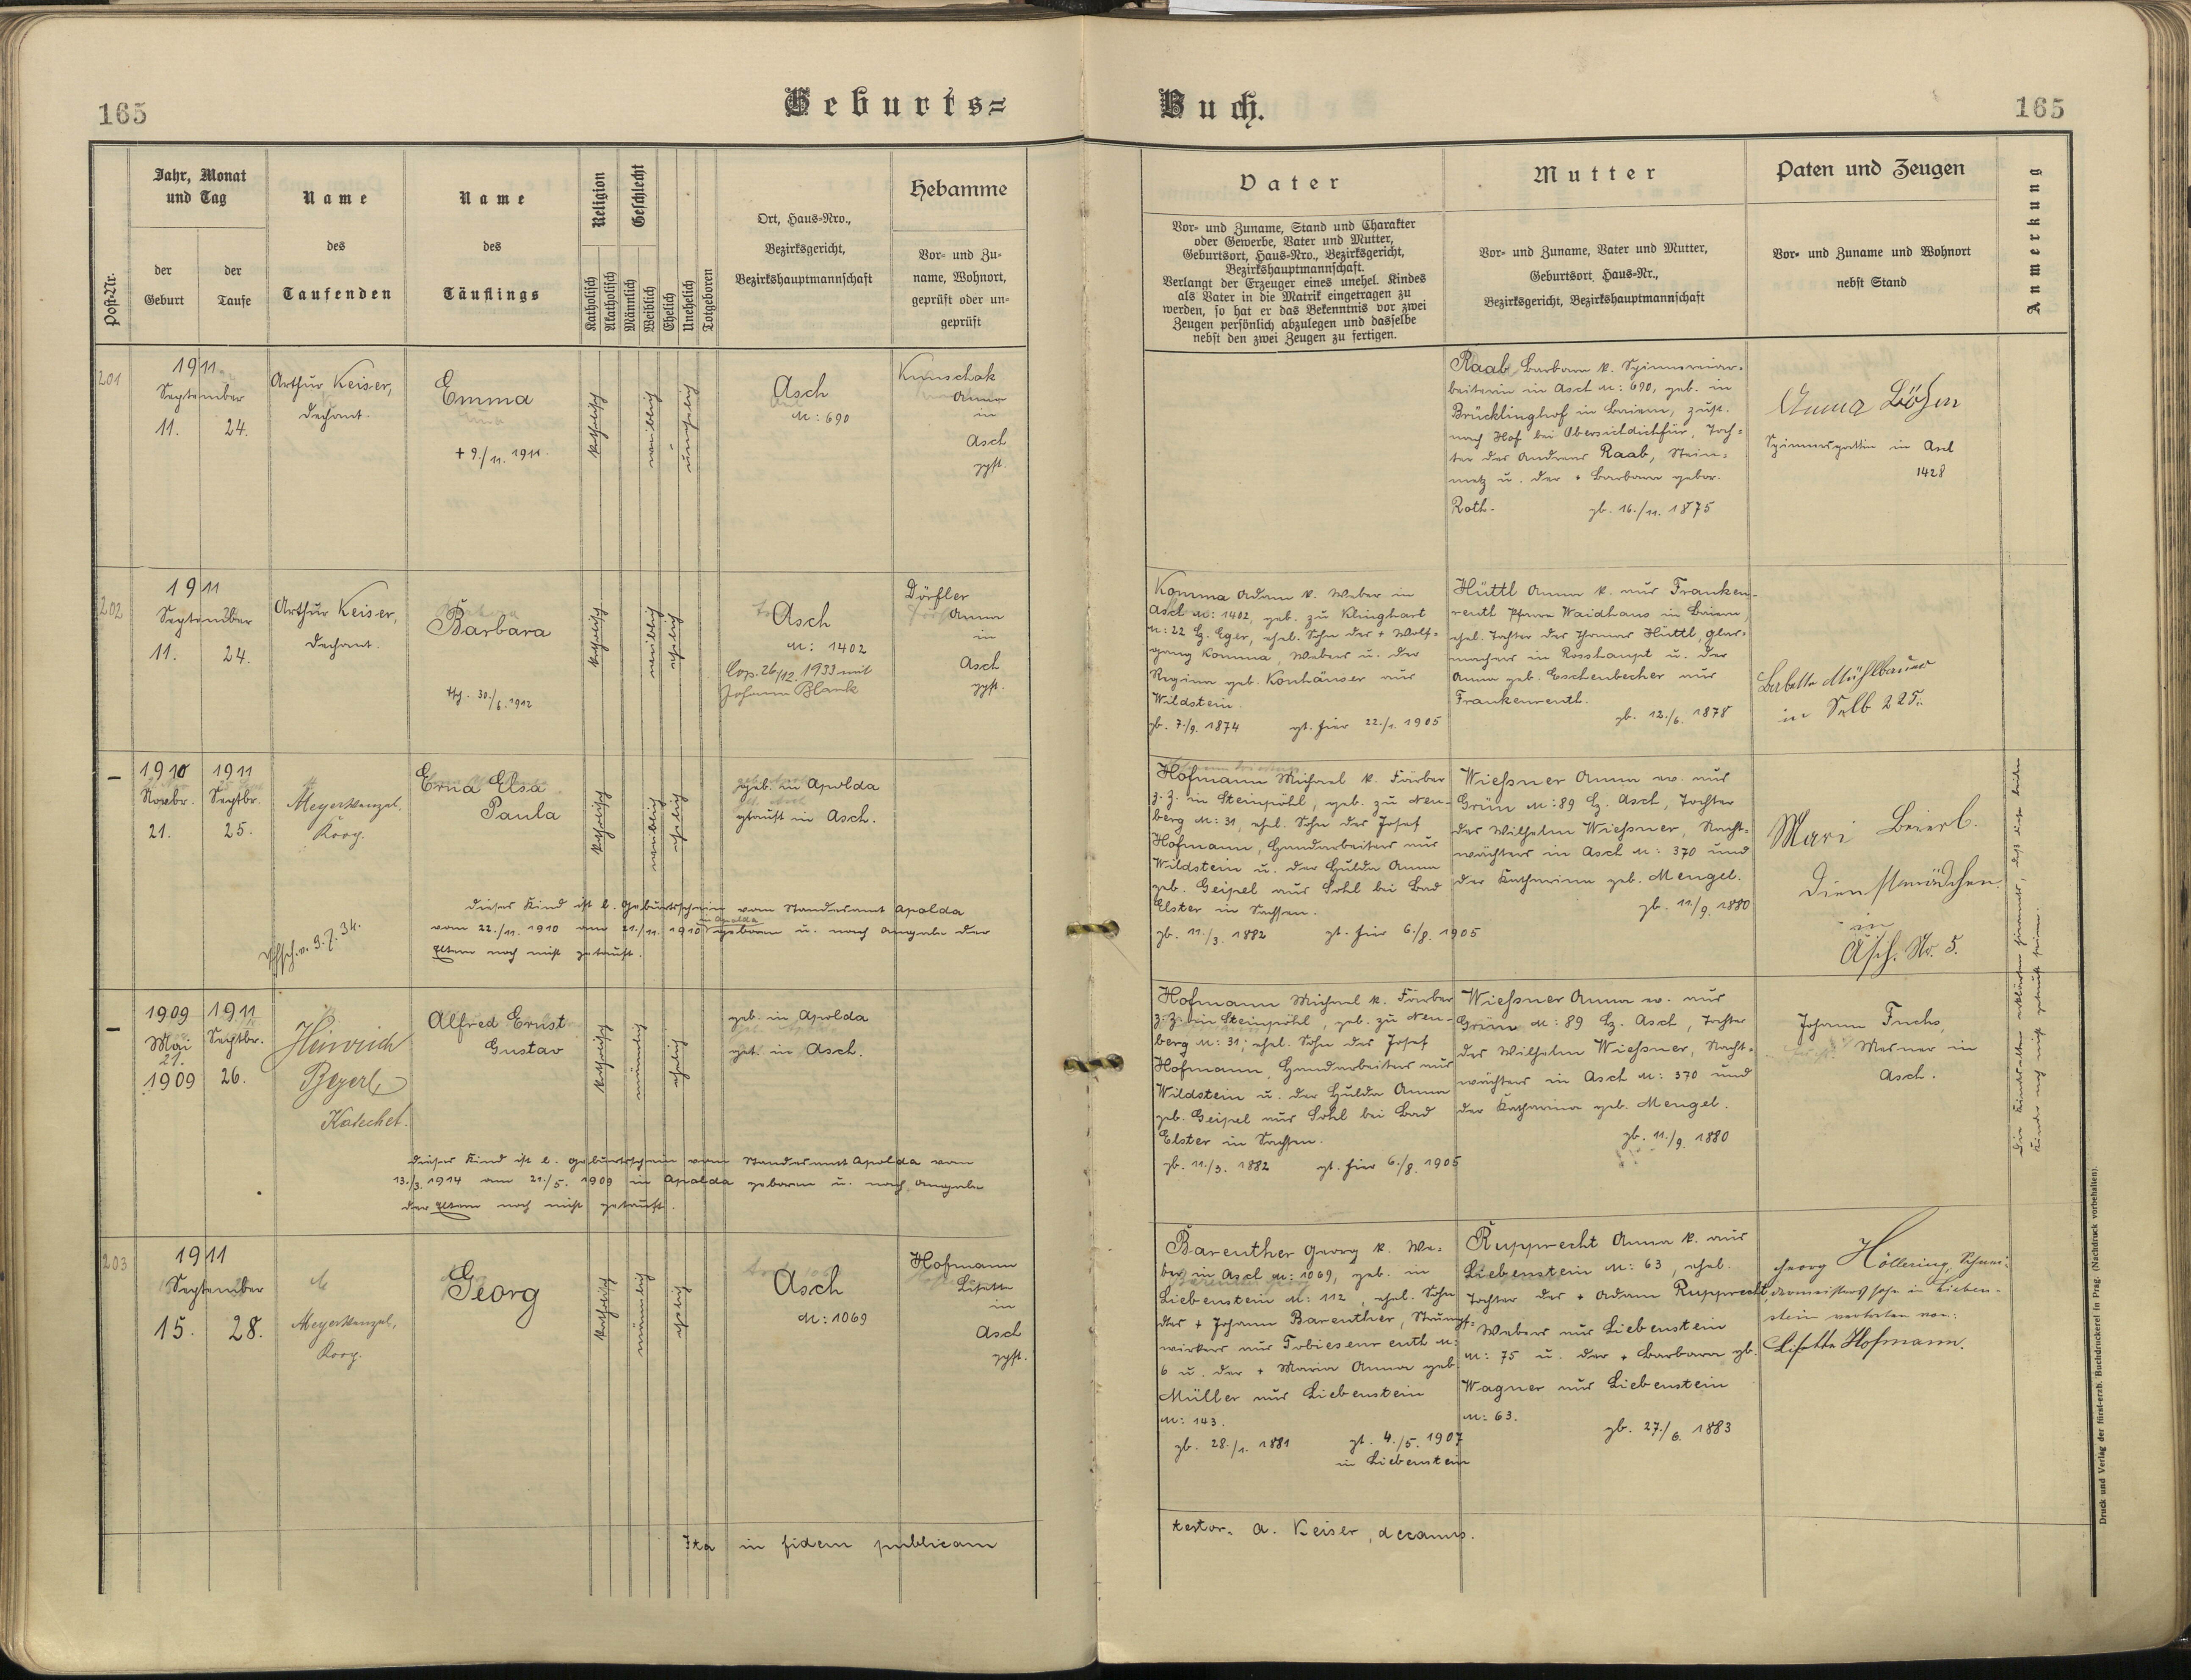 165
Geburts=
Buch.
165
Post-Nr.
Jahr, Monat
und Tag
der
Geburt
der
Taufe
Name
des
Taufenden
Name
des
Täuflings
Religion
Katholisch
Akatholisch
Geschlecht
Männlich
Weiblich
Ehelich
Unehelich
Totgeboren
Ort, Haus-Nro.,
Bezirksgericht,
Bezirkshauptmannschaft
Hebamme
Vor- und Zu-
name, Wohnort,
geprüft oder un-
geprüft
Vater
Vor- und Zuname, Stand und Charakter
oder Gewerbe, Vater und Mutter,
Geburtsort, Haus-Nro., Bezirksgericht,
Bezirkshauptmannschaft.
Verlangt der Erzeuger eines unehel. Kindes
als Vater in die Matrik eingetragen zu
werden, so hat er das Bekenntnis vor zwei
Zeugen persönlich abzulegen und dasselbe
nebst den zwei Zeugen zu fertigen.
Mutter
Vor- und Zuname, Vater und Mutter,
Geburtsort, Haus-Nr.,
Bezirksgericht, Bezirkshauptmannschaft
Paten und Zeugen
Vor- und Zuname und Wohnort
nebst Stand
Anmerkung
201
1911
September
11. 24.
Arthur Keiser,
Dechant.
Emma
+ 9./11. 1911.
katholisch
weiblich
unehelich
Asch
N: 690
Anna
in
Asch
gepft.
Raab Barbara k. Spinnereiar-
beiterin in Asch N: 690, geb. in
Brücklinghof in Baiern, zust.
nach Hof bei Toch-
ter des Andreas Raab, Stein-
metz u. der + Barbara gebor.
Roth.
gb. 16./11. 1875
Anna
Spinnersgattin in Asch
1428
202
1911
September
11. 24.
Arthur Keiser,
Dechant.
Barbara
30./6. 1912
katholisch
weiblich
ehelich
Asch
N: 1402
Cop. 26/12. 1933 mit
Johann Blank
Dörfler
Anna
in
Asch
gepft.
Komma Adam k. Weber in
Asch N: 1402, geb. zu Klinghart
N: 22 Bz. Eger, ehel. Sohn des + Wolf-
gang Komma, Webers u. der
Regina geb. Konhäuser aus
Wildstein.
gb. 7./9. 1874 gt. hier 22./1. 1905
Hüttl Anna k. aus Franken-
reuth Pfarre Waidhaus in Baiern,
ehel. Tochter des Thomas Hüttl, Glas-
machers in Rosshaupt u. der
Anna geb. Eschenbecher aus
Frankenreuth.
gb. 12./6. 1878
Babette Mühlbauer
in Selb 225.
–
1910 1911
Novbr. Septbr.
21. 25.
Meyer Wenzel,
Koop.
Erna Elsa
Paula
katholisch
weiblich
ehelich
geb. in Apolda
getauft in Asch.
dieses Kind ist l. Geburtsschein vom Standesamt Apolda
vom 22./11. 1910 am 21./11. 1910 in Apolda geboren u. nach Angabe der
Eltern noch nicht getauft.
v. 9.7.34.
Hofmann Michael k. Färber
z. Z. in Steinpöhl, geb. zu Neu-
berg N: 31, ehel. Sohn des Josef
Hofmann, Handarbeiters aus
Wildstein u. der Hulda Anna
geb. Geipel aus Sohl bei Bad
Elster in Sachsen.
gb. 11./3. 1882 gt. hier 6./8. 1905
Wießner Anna ev. aus
Grün N: 89 Bz. Asch, Tochter
des Wilhelm Wießner, Nacht-
wächters in Asch N: 370 und
der Katharina geb. Mengel.
gb. 11./9. 1880
Mari Beierl.
Dienstmädchen
in
Asch. No. 5.
Die Kindseltern erklärten hierorts, daß diese beiden
Kinder noch nicht getauft seien.
–
1909 1911
Mai Septbr.
21.
1909 26.
Heinrich
Beyerl
Katechet.
Alfred Ernst
Gustav
katholisch
männlich
ehelich
geb. in Apolda
get. in Asch.
dieses Kind ist l. Geburtsschein vom Standesamt Apolda vom
13./3. 1914 am 21./5. 1909 in Apolda geboren u. nach Angabe
der Eltern noch nicht getauft.
Hofmann Michael k. Färber
z. Z. in Steinpöhl, geb. zu Neu-
berg N: 31; ehel. Sohn des Josef
Hofmann, Handarbeiters aus
Wildstein u. der Hulda Anna
geb. Geipel aus Sohl bei Bad
Elster in Sachsen.
gb. 11./3. 1882 gt. hier 6./8. 1905
Wießner Anna ev. aus
Grün N: 89 Bz. Asch, Tochter
des Wilhelm Wießner, Nacht-
wächters in Asch N: 370 und
der Katharina geb. Mengel.
gb. 11./9. 1880
Johann Fuchs,
Mesner in
Asch.
203
1911
September
15. 28.
Meyer Wenzel,
Koop.
Georg
katholisch
männlich
ehelich
Asch
N: 1069
Hofmann
Lisette
in
Asch
gepft.
Bareuther Georg k. We-
ber in Asch N: 1069, geb. in
Liebenstein N: 112, ehel. Sohn
des + Johann Bareuther, Strumpf-
wirkers aus Tobiesenreuth N:
6 u. der + Maria Anna geb.
Müller aus Liebenstein
N: 143.
gb. 28./1. 1881 gt. 4./5. 1907
in Liebenstein
Rupprecht Anna k. aus
Liebenstein N: 63, ehel.
Tochter des + Adam Rupprecht
Webers aus Liebenstein
N: 75 u. der + Barbara gb.
Wagner aus Liebenstein
N: 63.
gb. 27./6. 1883
Georg Höllering, Schnei-
dermeisterssohn in Lieben-
stein vertreten von:
Lisette Hofmann.
Ita in fidem publicam
testor. A. Keiser, decanus.
Druck und Verlag der fürst-erzb. Buchdruckerei in Prag. (Nachdruck vorbehalten).